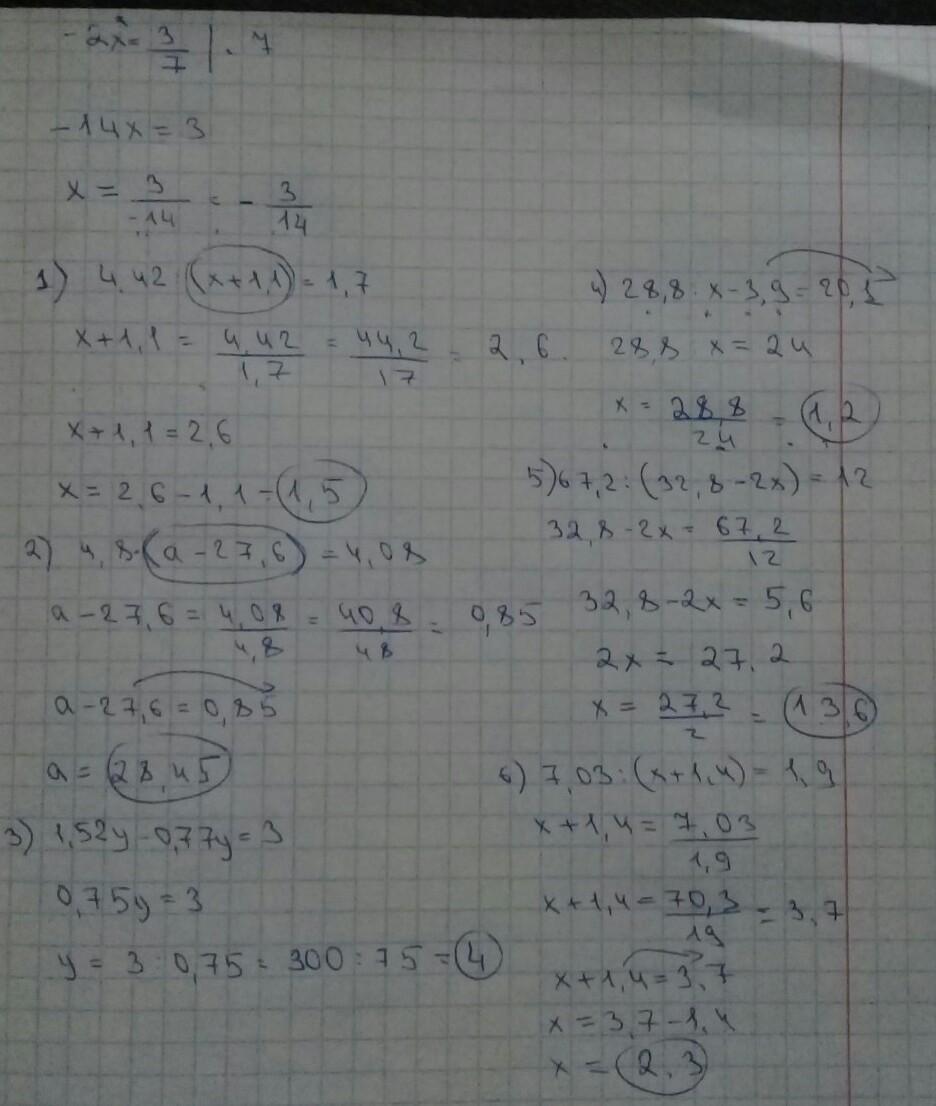 -2x = 3/7 | · 7
-14x = 3
x = 3/-14 = - 3/14
1) 4,42 : (x+1,1) = 1,7
x+1,1 = 4,42/1,7 = 44,2/17 = 2,6.
x+1,1 = 2,6
x = 2,6 - 1,1 = 1,5
2) 4,8·(a-27,6) = 4,08
a-27,6 = 4,08/4,8 = 40,8/48 = 0,85
a-27,6 = 0,85
a = 28,45
3) 1,52y - 0,77y = 3
0,75y = 3
y = 3 : 0,75 = 300 : 75 = 4
4) 28,8 : x - 3,9 = 20,1
28,8 x = 24
x = 28,8/24 = 1,2
5) 67,2 : (32,8-2x) = 12
32,8-2x = 67,2/12
32,8-2x = 5,6
2x = 27,2
x = 27,2/2 = 13,6
6) 7,03 : (x+1,4) = 1,9
x+1,4 = 7,03/1,9
x+1,4 = 70,3/19 = 3,7
x+1,4 = 3,7
x = 3,7-1,4
x = 2,3